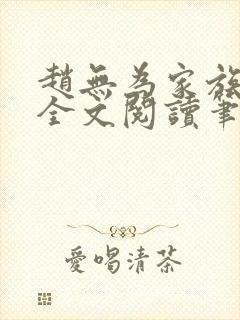 趙無為家族
全文閱讀筆
愛喝清茶